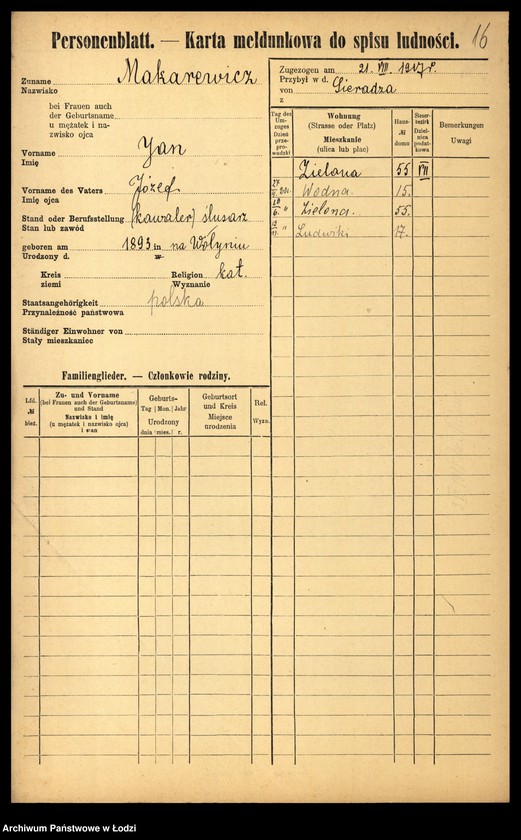 Personenblatt. — Karta meldunkowa do spisu ludności. 16
Zuname Makarewicz
Nazwisko
bei Frauen auch
der Geburtsname
u mężatek i na-
zwisko ojca
Vorname Jan
Imię
Vorname des Vaters Józef
Imię ojca
Stand oder Berufsstellung (kawaler) ślusarz
Stan lub zawód
geboren am 1893 in na Wołyniu
Urodzony d. w
Kreis Religion kat.
ziemi Wyznanie
Staatsangehörigkeit polska
Przynależność państwowa
Ständiger Einwohner von
Stały mieszkaniec
Familienglieder. — Członkowie rodziny.
Lfd. № bież.
Zu- und Vorname
(bei Frauen auch der Geburtsname)
und Stand
Nazwisko i imię
(u mężatek i nazwisko ojca)
i stan
Geburts-
Tag Mon. Jahr
Urodzony
dnia mies. r.
Geburtsort
und Kreis
Miejsce
urodzenia
Rel.
Wyzn.
Zugezogen am 21. VIII. 1917 r.
Przybył w d.
von Sieradza
z
Tag des
Um-
zuges
Dzień
prze-
prowadzki
Wohnung
(Strasse oder Platz)
Mieszkanie
(ulica lub plac)
Haus-
№
domu
Steuer-
bezirk
Dziel-
nica
podat-
kowa
Bemerkungen
Uwagi
Zielona 55 VII
Wodna 15.
Zielona 55.
Ludwiki 17.
Archiwum Państwowe w Łodzi